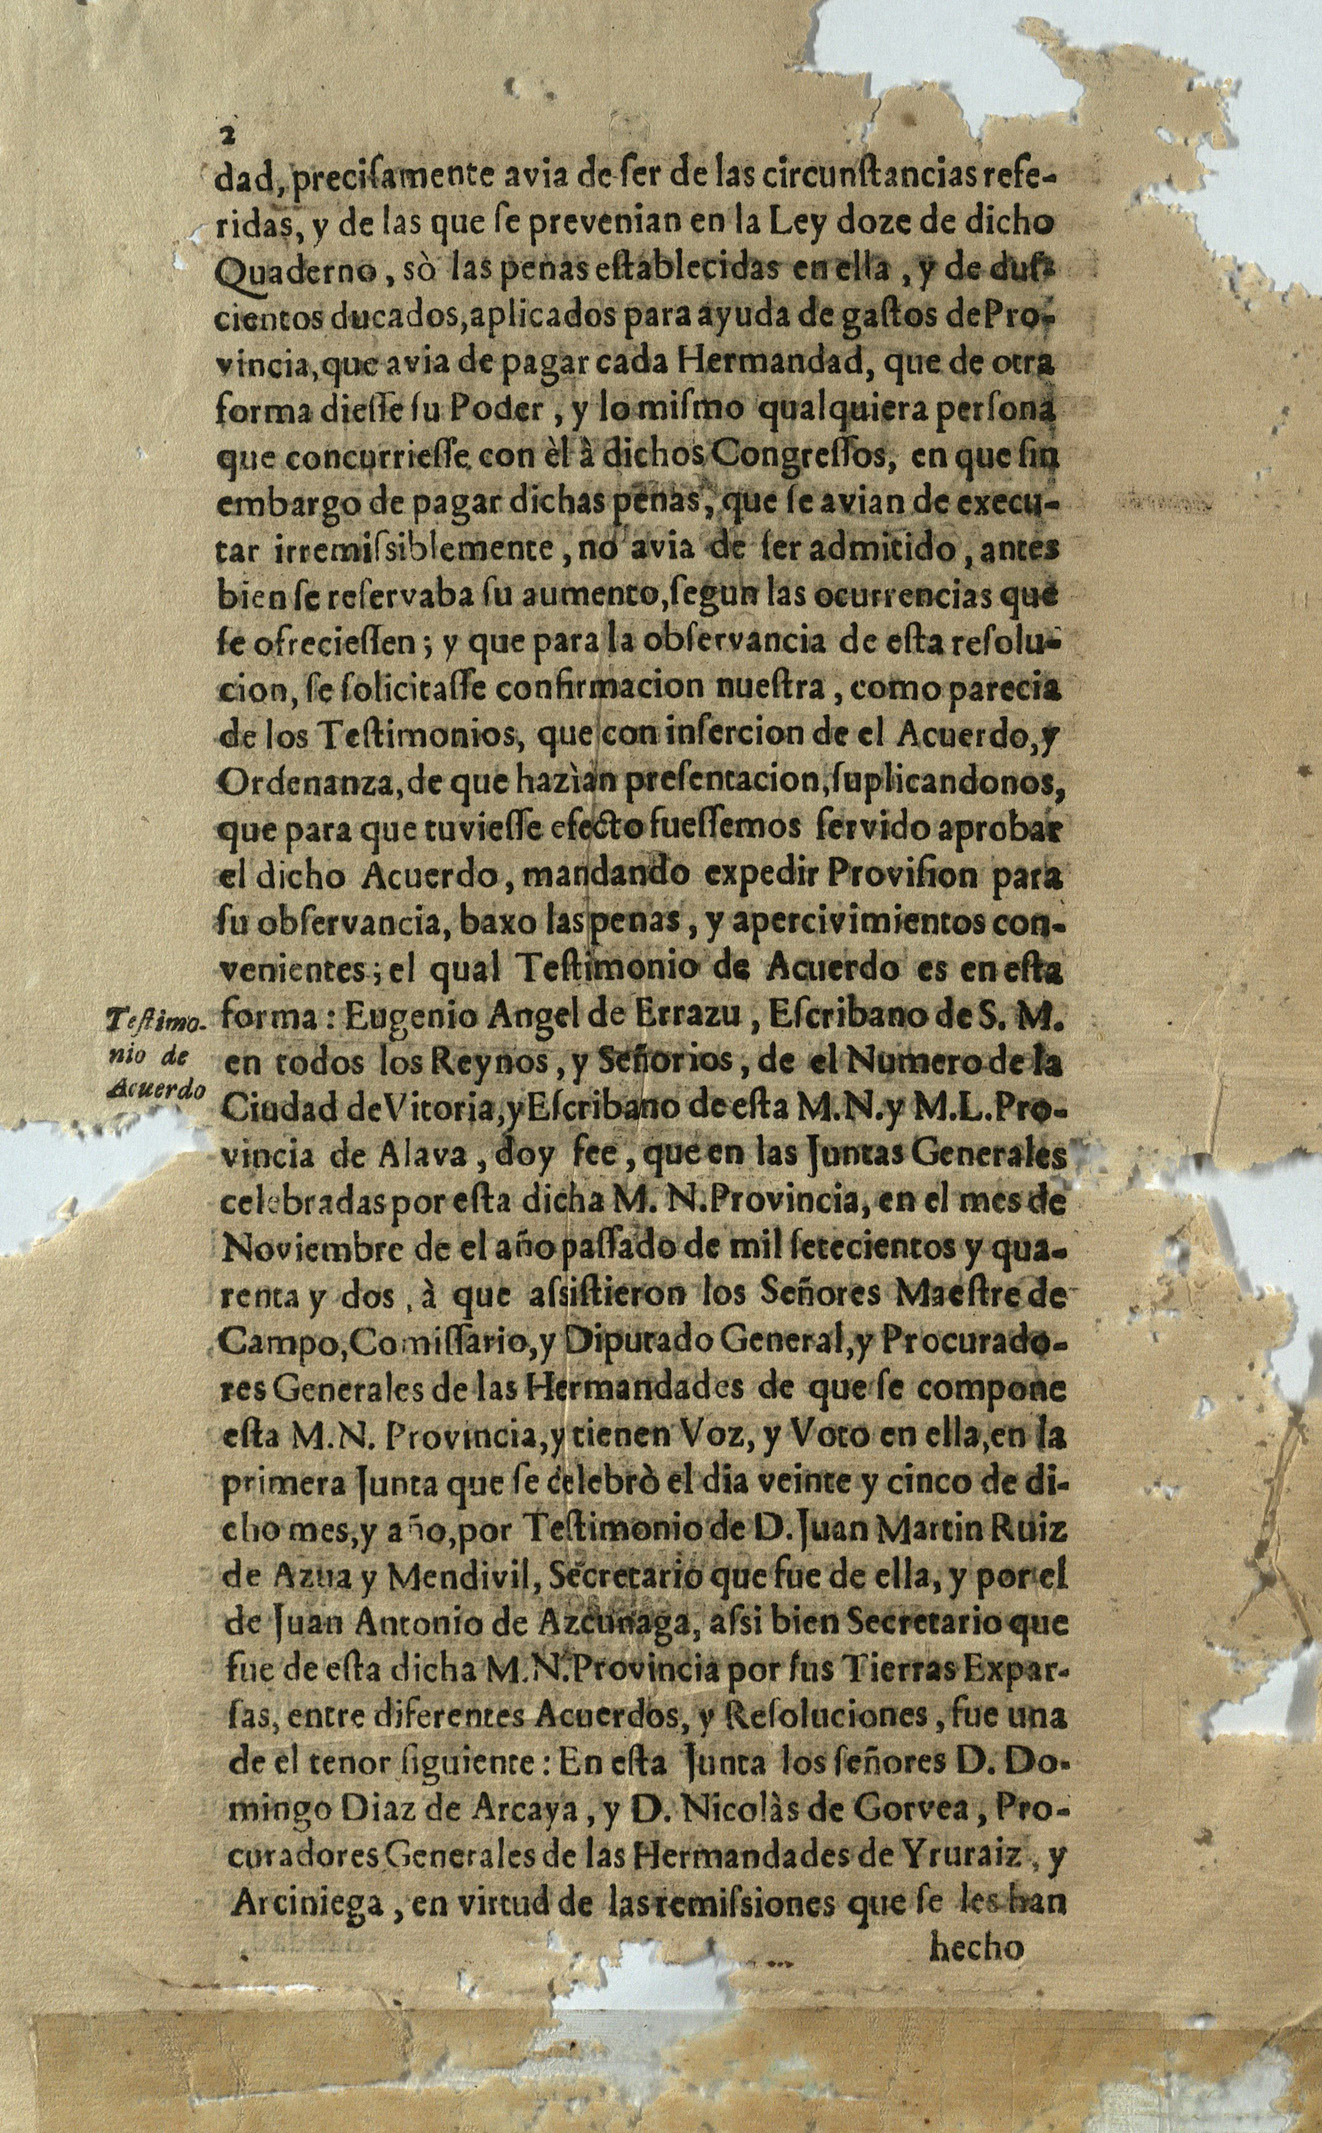 2
dad, preciſamente avia de ſer de las circunſtancias refe-
ridas, y de las que ſe prevenian en la Ley doze de dicho
Quaderno, sò las penas eſtablecidas en ella, y de duſ-
cientos ducados, aplicados para ayuda de gaſtos de Pro-
vincia, que avia de pagar cada Hermandad, que de otra
forma dieſſe ſu Poder, y lo miſmo qualquiera perſona
que concurrieſſe con èl à dichos Congreſſos, en que ſin
embargo de pagar dichas penas, que ſe avian de execu-
tar irremiſsiblemente, no avia de ſer admitido, antes
bien ſe reſervaba ſu aumento, ſegun las ocurrencias que
ſe ofrecieſſen; y que para la obſervancia de eſta reſolu-
cion, ſe ſolicitaſſe confirmacion nueſtra, como parecia
de los Teſtimonios, que con inſercion de el Acuerdo, y
Ordenanza, de que hazìan preſentacion, ſuplicandonos,
que para que tuvieſſe efecto fueſſemos ſervido aprobar
el dicho Acuerdo, mandando expedir Proviſion para
ſu obſervancia, baxo las penas, y apercivimientos con-
venientes; el qual Teſtimonio de Acuerdo es en eſta
Teſtimo-
nio de
Acuerdo
forma: Eugenio Angel de Errazu, Eſcribano de S. M.
en todos los Reynos, y Señorios, de el Numero de la
Ciudad de Vitoria, y Eſcribano de eſta M.N. y M.L. Pro-
vincia de Alava, doy fee, que en las Juntas Generales
celebradas por eſta dicha M. N. Provincia, en el mes de
Noviembre de el año paſſado de mil ſetecientos y qua-
renta y dos, à que aſsiſtieron los Señores Maeſtre de
Campo, Comiſſario, y Diputado General, y Procurado-
res Generales de las Hermandades de que ſe compone
eſta M.N. Provincia, y tienen Voz, y Voto en ella, en la
primera Junta que ſe celebrò el dia veinte y cinco de di-
cho mes, y año, por Teſtimonio de D. Juan Martin Ruiz
de Azua y Mendivil, Secretario que fue de ella, y por el
de Juan Antonio de Azcunaga, aſsi bien Secretario que
fue de eſta dicha M.N. Provincia por ſus Tierras Expar-
ſas, entre diferentes Acuerdos, y Reſoluciones, fue una
de el tenor ſiguiente: En eſta Junta los ſeñores D. Do-
mingo Diaz de Arcaya, y D. Nicolàs de Gorvea, Pro-
curadores Generales de las Hermandades de Yruraiz, y
Arciniega, en virtud de las remiſsiones que ſe les han
hecho